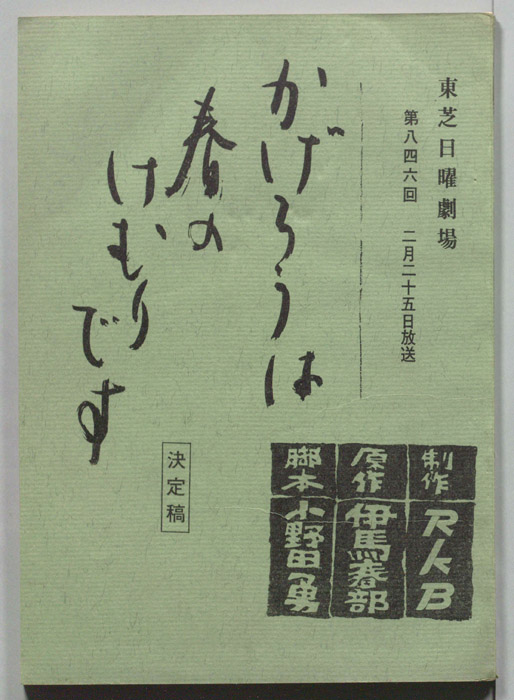 東芝日曜劇場
第八四六回　二月二十五日放送
かげろうは
春の
けむり
です
決定稿
制作 RKB
原作 伊馬春部
脚本 小野田勇